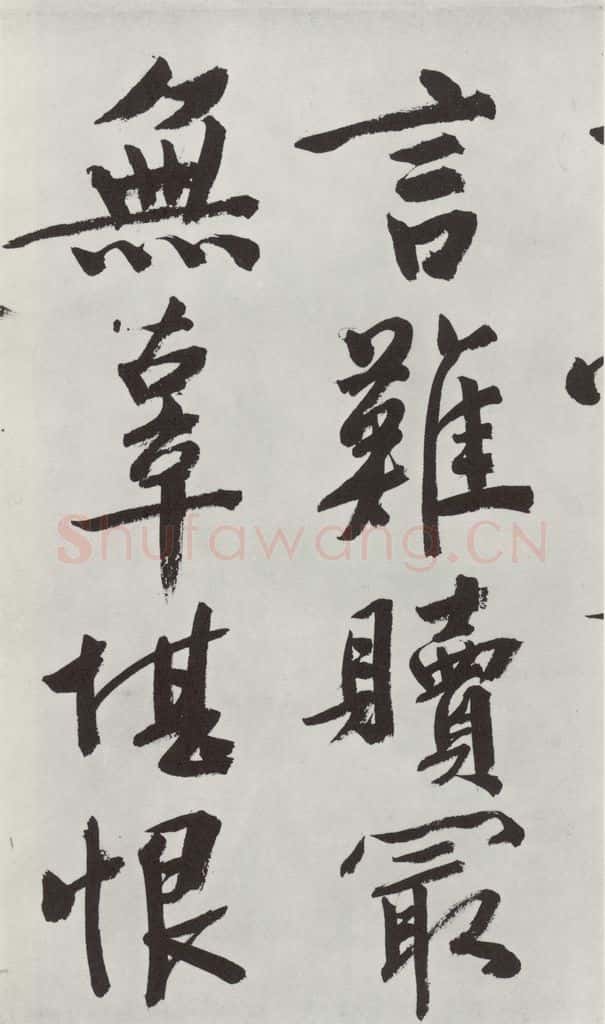 言難贖冣
無辜堪恨
Shufawang.CN